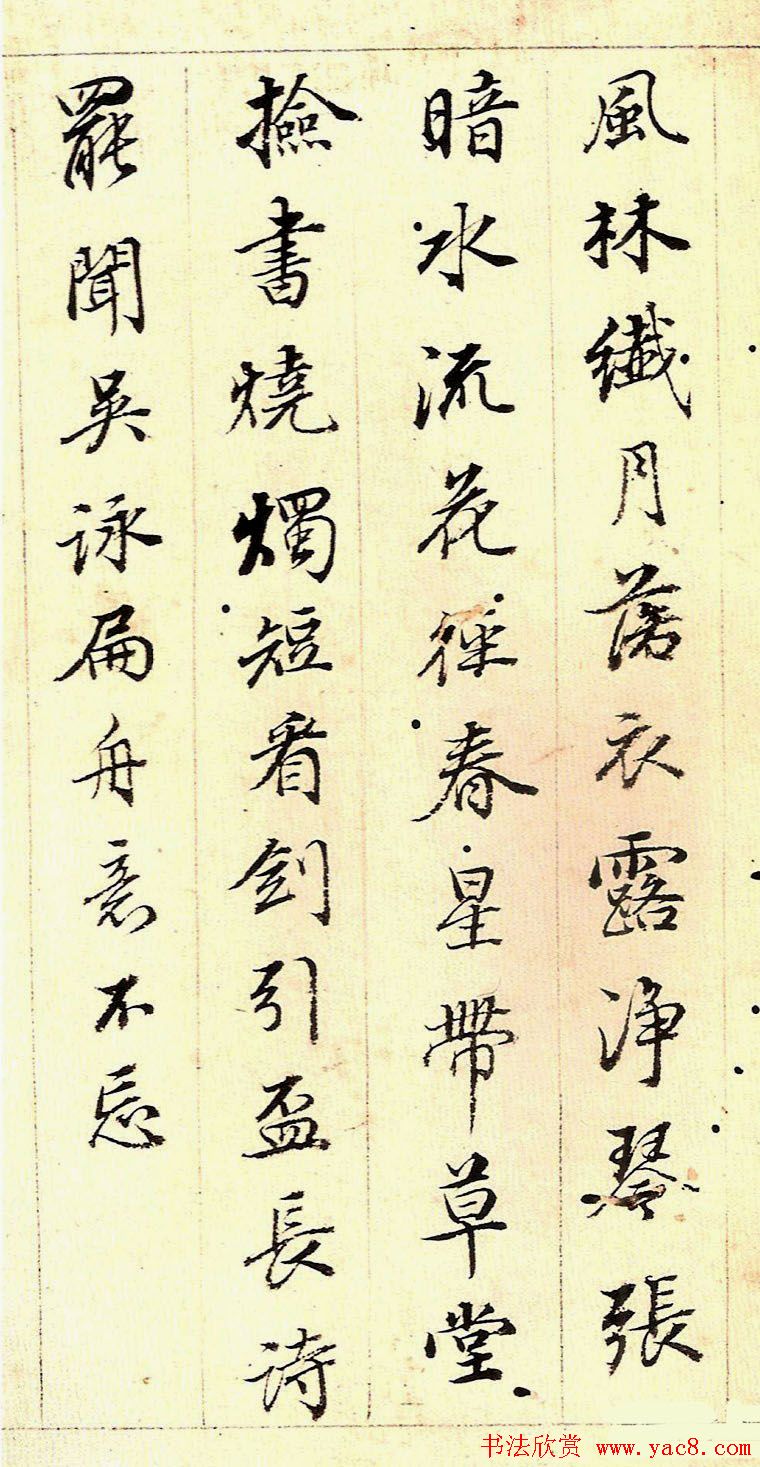 風林纖月落衣露浄琴張
暗水流花徑春星帶草堂
撿書燒燭短看劍引盃長詩
罷聞吴詠扁舟意不忘
书法欣赏 www.yac8.com